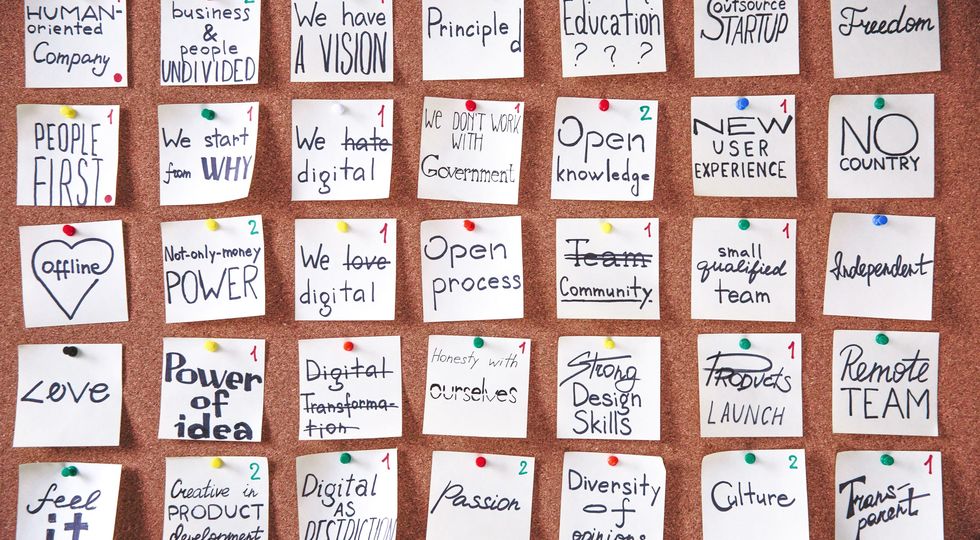 HUMAN-
oriented
Company
business
&
people
UNDIVIDED
We have
A VISION
Principled
Education
? ? ?
Outsource
STARTUP
Freedom
1
PEOPLE
FIRST
1
We start
from WHY
1
We hate
digital
1
We DON'T WORK
WITH
Government
2
Open
knowledge
1
NEW
USER
EXPERIENCE
NO
COUNTRY
offline
2
Not-only-money
POWER
1
We love
digital
Open
process
1
Team
Community.
1
small
qualified
team
Independent
Love
1
Power
of
idea
Digital
Transforma-
tion
1
Honesty with
ourselves
Strong
Design
Skills
1
Products
LAUNCH
Remote
TEAM
feel
it
2
Creative in
PRODUCT
development
1
Digital
AS
2
Passion
Diversity
of
opinions
2
Culture
1
Trans-
parent